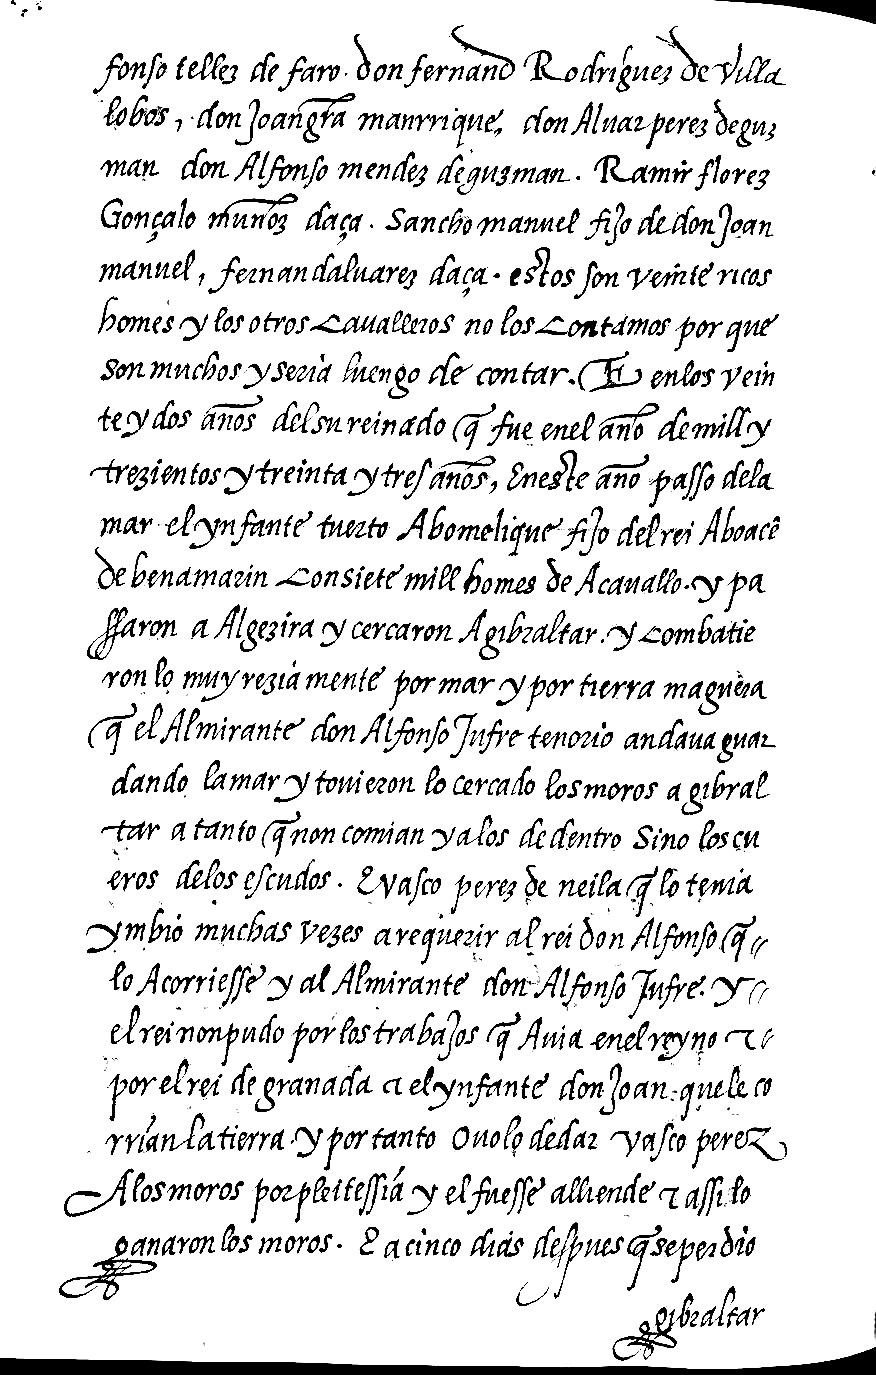 fonso tellez de faro. don fernand Rodriguez de villa
lobos, don Joan gra manrrique, don Aluar perez de guz
man don Alfonso mendez de guzman. Ramir florez
Gonçalo munoz daça. Sancho manuel fijo de don Joan
manuel, fernand aluarez daça. estos son veinte ricos
homes y los otros cavalleros no los contamos por que
son muchos y seria luengo de contar. E en los vein
te y dos años del su reinado q̃ fue en el año de mill y
trezientos y treinta y tres años, En este año passo de la
mar el ynfante tuerto Abomelique fijo del rei Aboacẽ
de benamarin con siete mill homes de Acauallo. y pa
ssaron a Algezira y cercaron A gibraltar. y combatie
ron lo muy reziamente por mar y por tierra maguera
q̃ el Almirante don Alfonso Jufre tenorio andaua guar
dando la mar y tovieron lo cercado los moros a gibral
tar a tanto q̃ non comian ya los de dentro Sino los cu
eros de los escudos. E vasco perez de neila q̃ lo tenia
ymbio muchas vezes a requerir al rei don Alfonso q̃
lo Acorriesse y al Almirante don Alfonso Jufre. y
el rei non pudo por los trabajos q̃ Avia en el reyno ⁊
por el rei de granada ⁊ el ynfante don Joan. que le co
rrian la tierra. y por tanto ovolo de dar vasco perez
A los moros por pleitessia y el fuesse alliende ⁊ assi lo
ganaron los moros. E a cinco dias despues q̃ se perdio
gibraltar